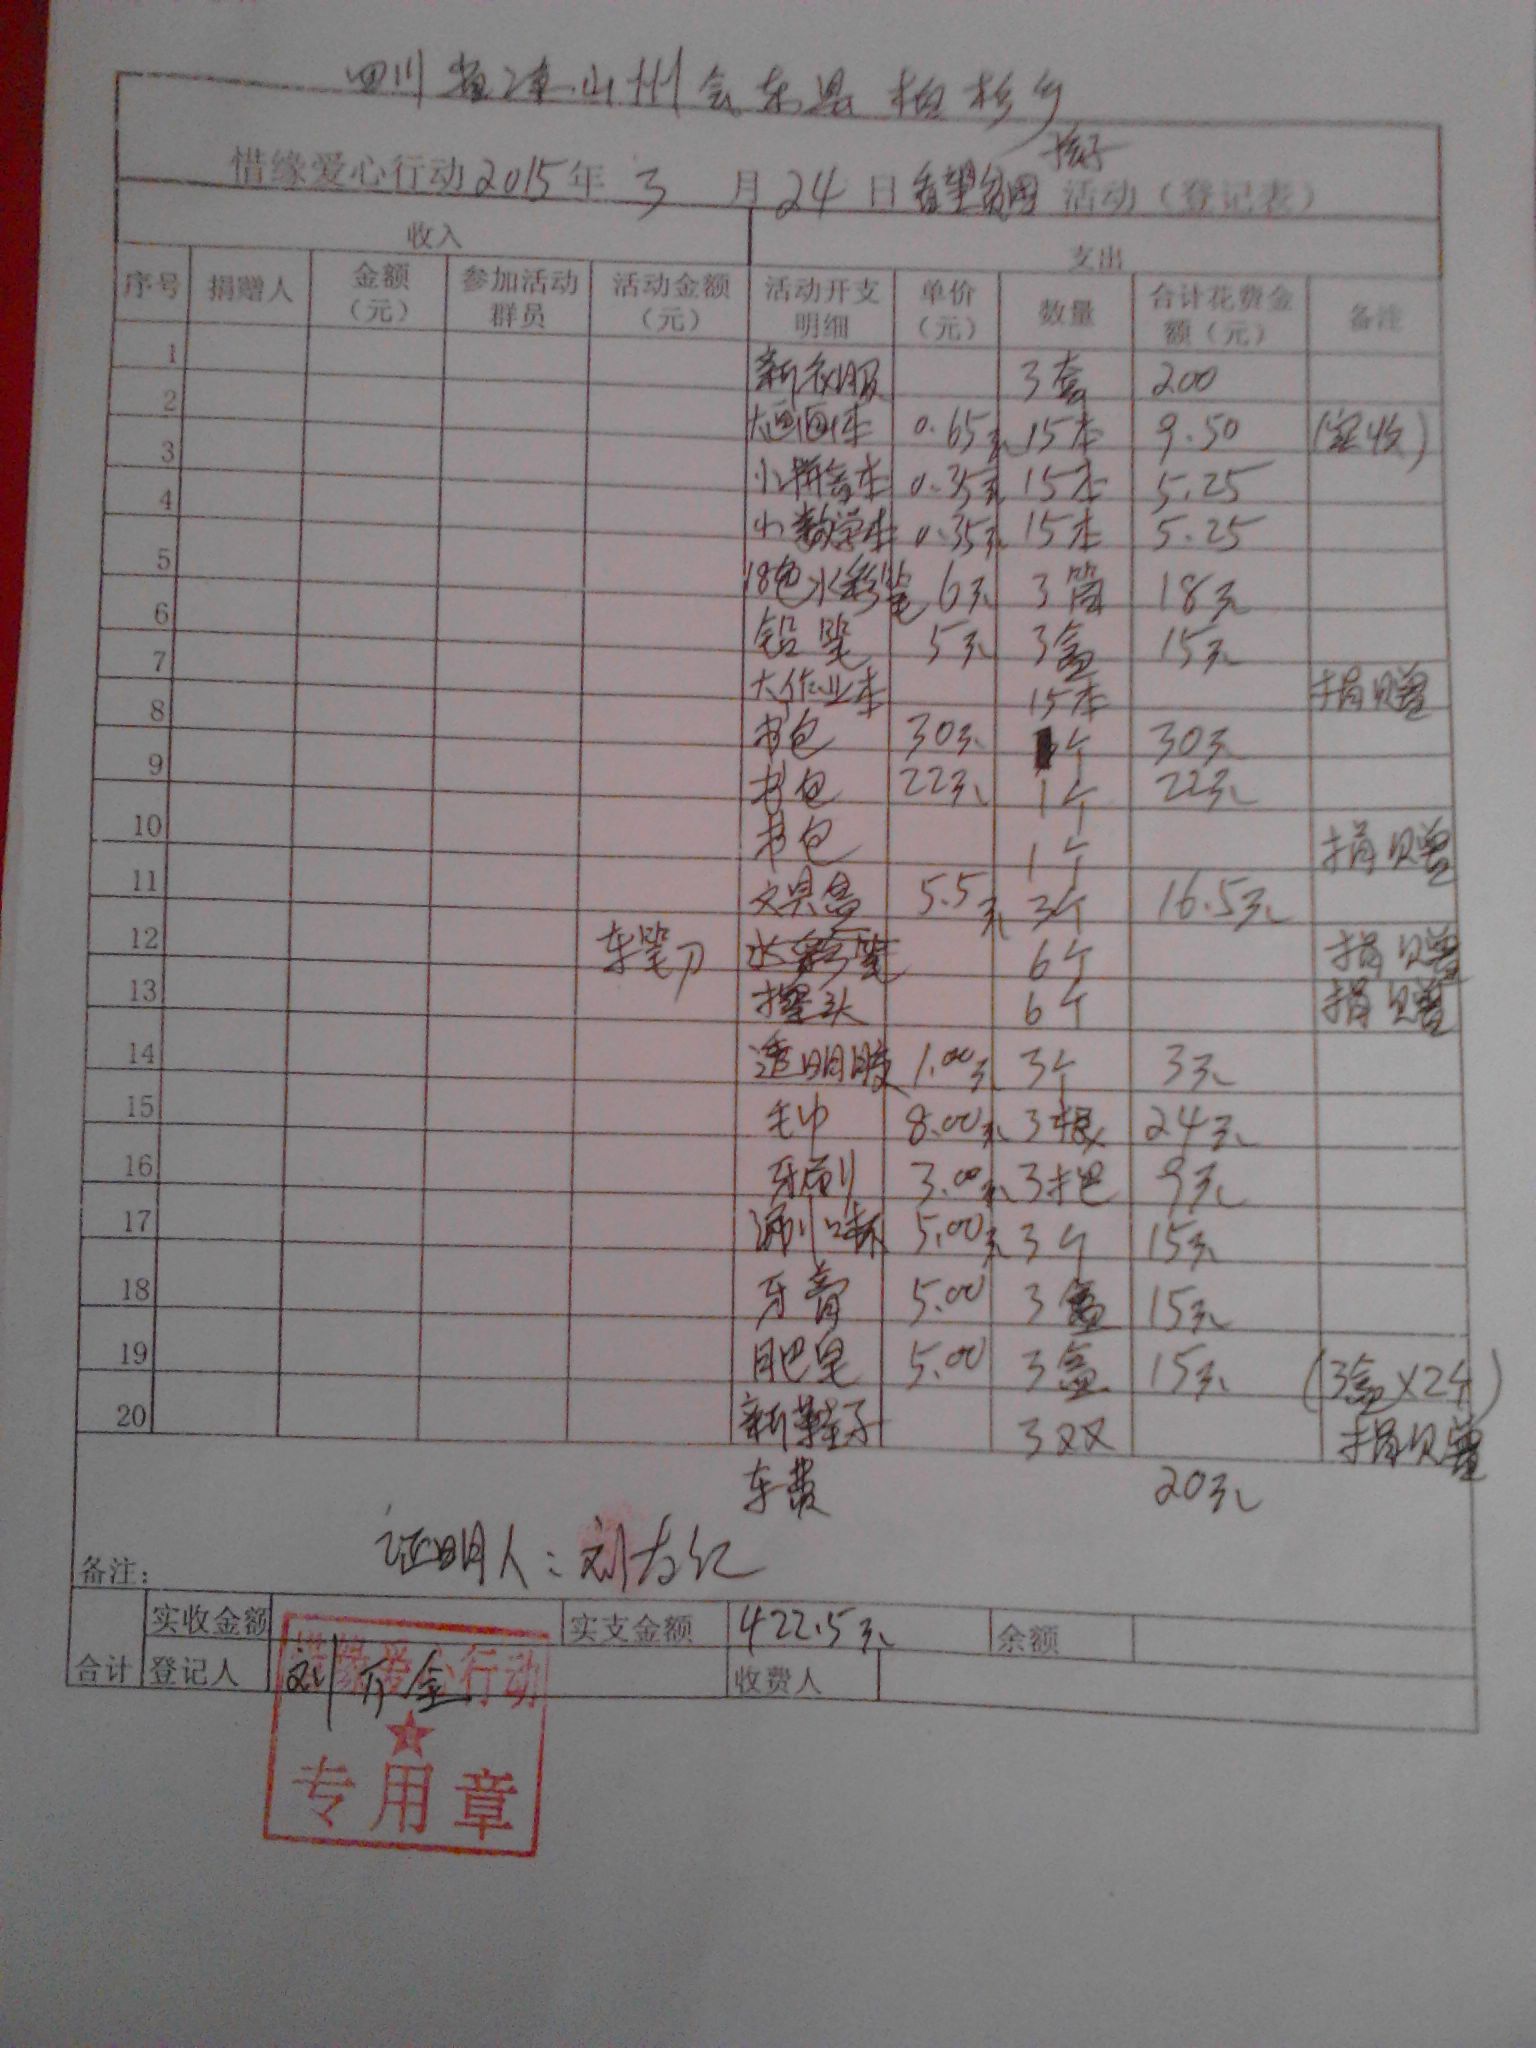 四川省凉山州会东县柏杉乡
孩子
惜缘爱心行动2015年3月24日看望贫困活动（登记表）
收入 支出
序号 捐赠人 金额（元） 参加活动群员 活动金额（元） 活动开支明细 单价（元） 数量 合计花费金额（元） 备注
1 新衣服 3套 200
2 大画图本 0.65元 15本 9.50 (实收)
3 小拼音本 0.35元 15本 5.25
4 小数学本 0.35元 15本 5.25
5 18色水彩笔 6元 3筒 18元
6 铅笔 5元 3盒 15元
7 大作业本 15本 捐赠
8 书包 30元 个 30元
9 书包 22元 1个 22元
10 书包 1个 捐赠
11 文具盒 5.5元 3个 16.5元
12 车笔刀 水彩笔 6个 捐赠
13 6个 捐赠
14 透明胶 1.00元 3个 3元
15 毛巾 8.00元 3根 24元
16 牙刷 3.00元 3把 9元
17 漱口杯 5.00元 3个 15元
18 牙膏 5.00 3盒 15元
19 肥皂 5.00 3盒 15元 (3盒×2个)
20 新鞋子 3双 捐赠
车费 20元
证明人：刘
备注：
合计 实收金额 实支金额 422.5元 余额
登记人 刘介金 收费人
惜缘爱心行动
专用章